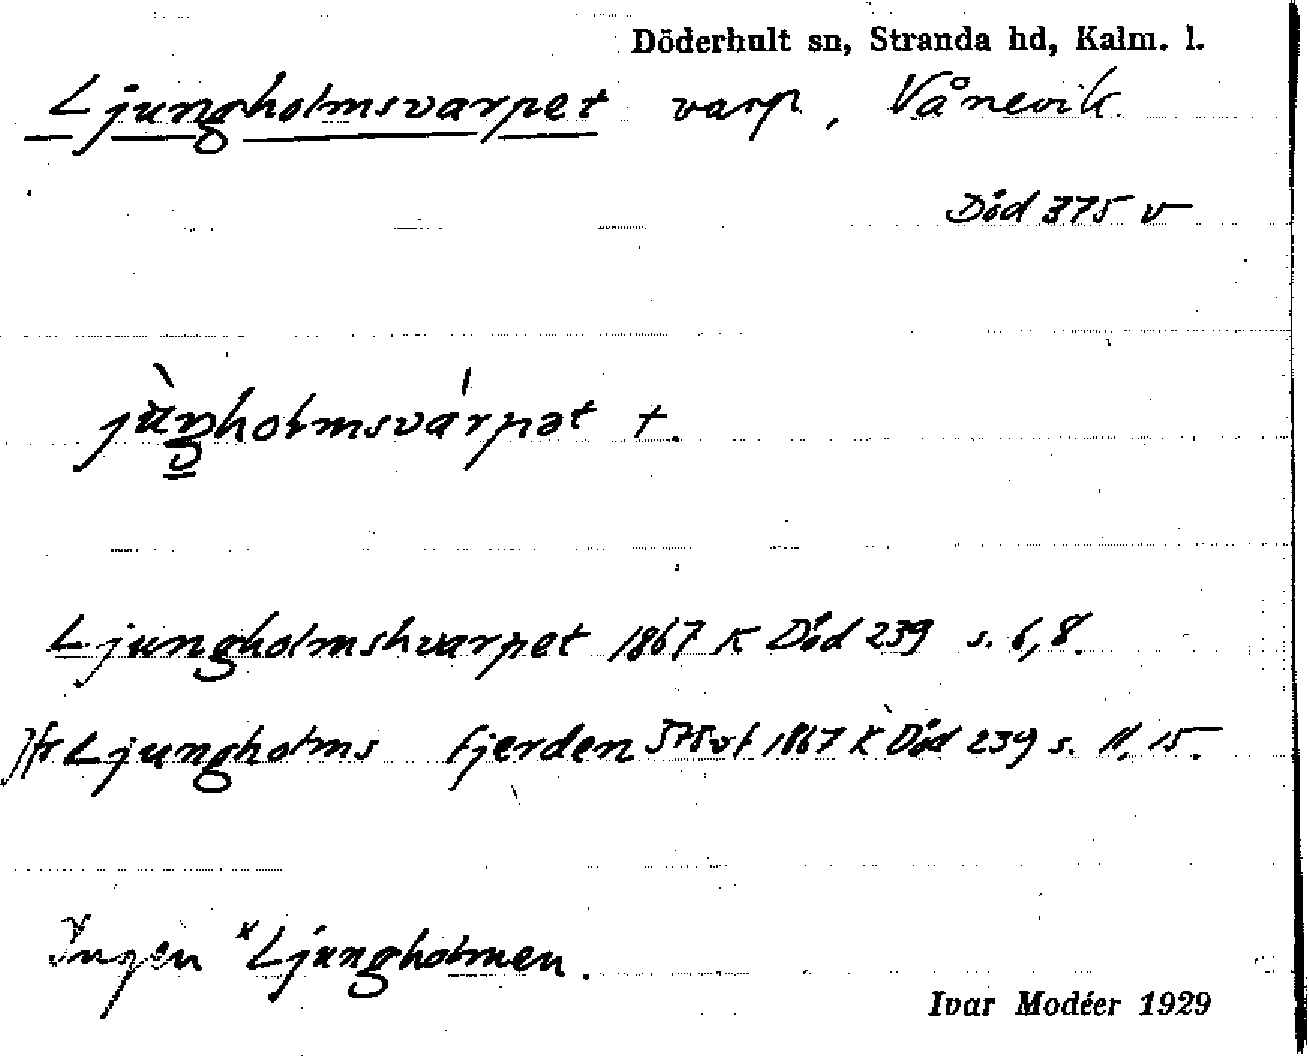 Döderhult sn, Stranda hd, Kalm. l.
Ljungholmsvarpet varp, Vånevik.
Död 375 v
jùŋholmsvárpət +.
Ljungholmshvarpet 1867 K Död 239 s. 6, 8.
Jfr Ljungholms fjerden 1867 K Död 239 s. 11, 15.
Ingen *Ljungholmen.
Ivar Modéer 1929